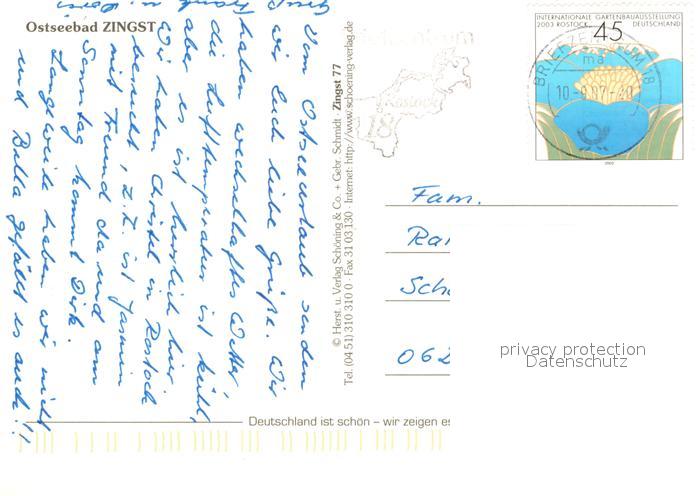 Ostseebad ZINGST
Vom Ostseeurlaub senden
wir Euch liebe Grüße. Wir
haben wechselhaftes Wetter,
die Lufttemperatur ist kühl,
aber es ist herrlich hier.
Wir haben Christel in Rostock
besucht, z.Z. ist Jasmin
mit Freund da und am
Sonntag kommt Dirk.
Langeweile haben wir nicht
und Bella gefällt es auch!!
© Herst. u. Verlag Schöning & Co. + Gebr. Schmidt · Zingst 77
Tel. (04 51) 310 310 0 · Fax 31 03 130 · Internet: http://www.schoening-verlag.de
Deutschland ist schön – wir zeigen es
INTERNATIONALE GARTENBAUAUSSTELLUNG
2003 ROSTOCK DEUTSCHLAND
45
BRIEFZENTRUM 18
ma
Briefzentrum
Rostock
18
Fam.
Ra
Sch
062
privacy protection
Datenschutz